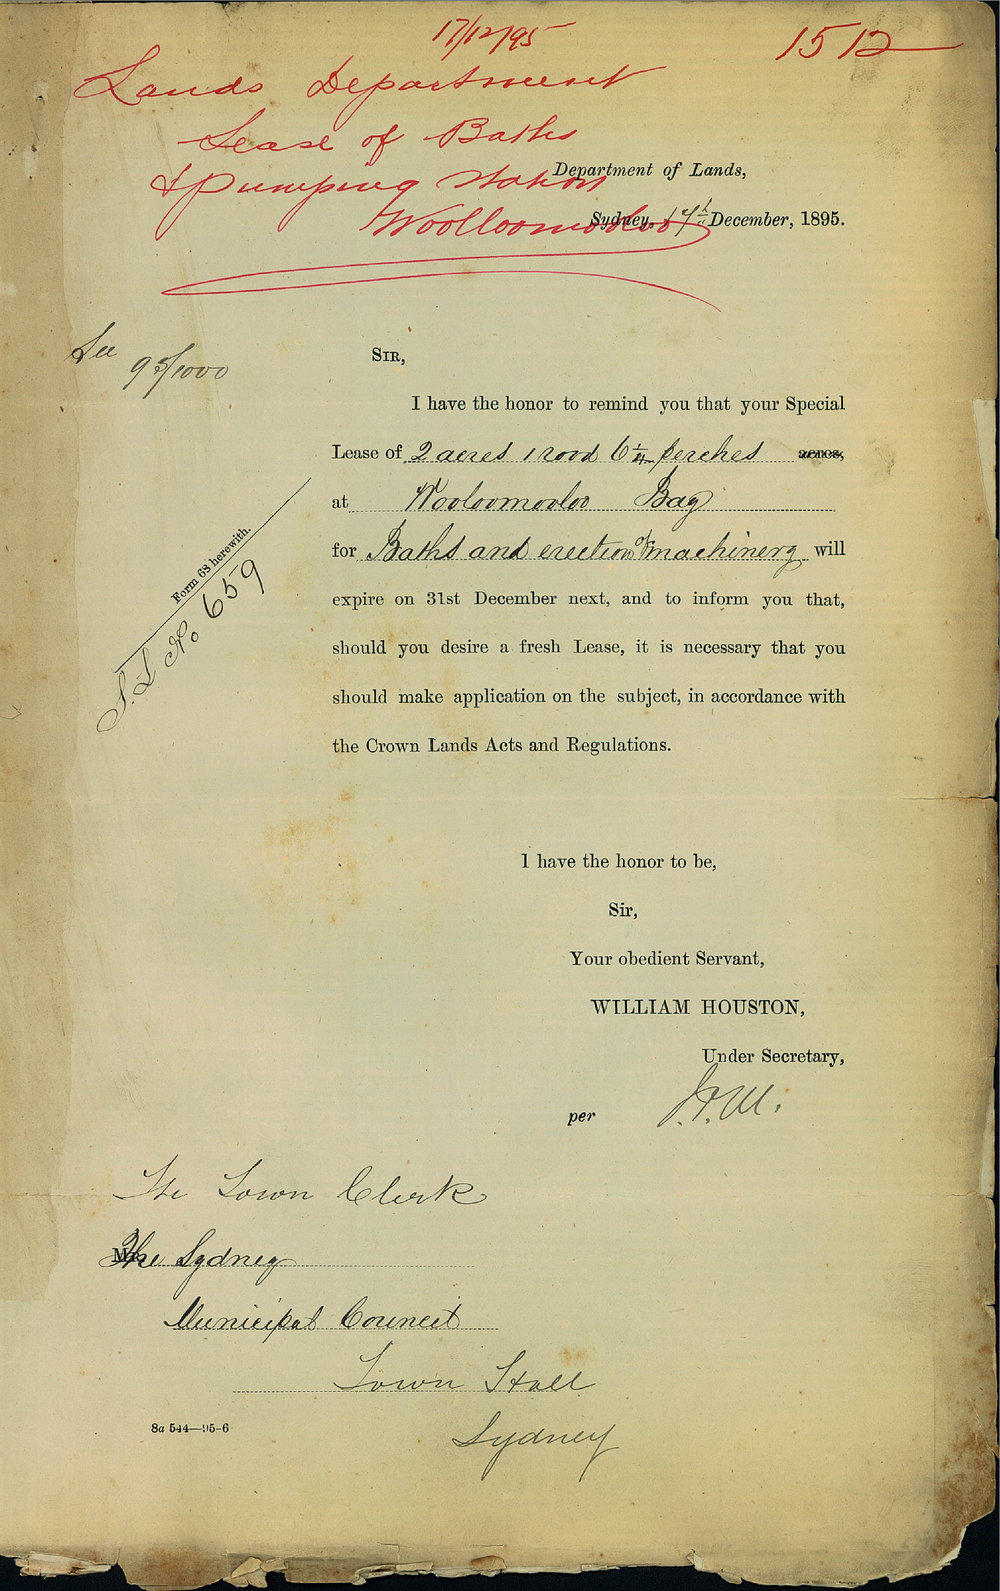 17/12/95
1512
Lands Department
Lease of Baths
& Pumping Station
Woolloomooloo
Department of Lands,
Sydney, 17th December, 1895.
See 95/1000
SIR,
I have the honor to remind you that your Special
Lease of 2 acres 1 rood 6 1/4 perches acres,
at Wooloomooloo Bay
for Baths and erection of machinery will
expire on 31st December next, and to inform you that,
should you desire a fresh Lease, it is necessary that you
should make application on the subject, in accordance with
the Crown Lands Acts and Regulations.
Form 68 herewith.
S.L No 659
I have the honor to be,
Sir,
Your obedient Servant,
WILLIAM HOUSTON,
Under Secretary,
per
The Town Clerk
The Sydney
Municipal Council
Town Hall
Sydney
8a 544—95-6